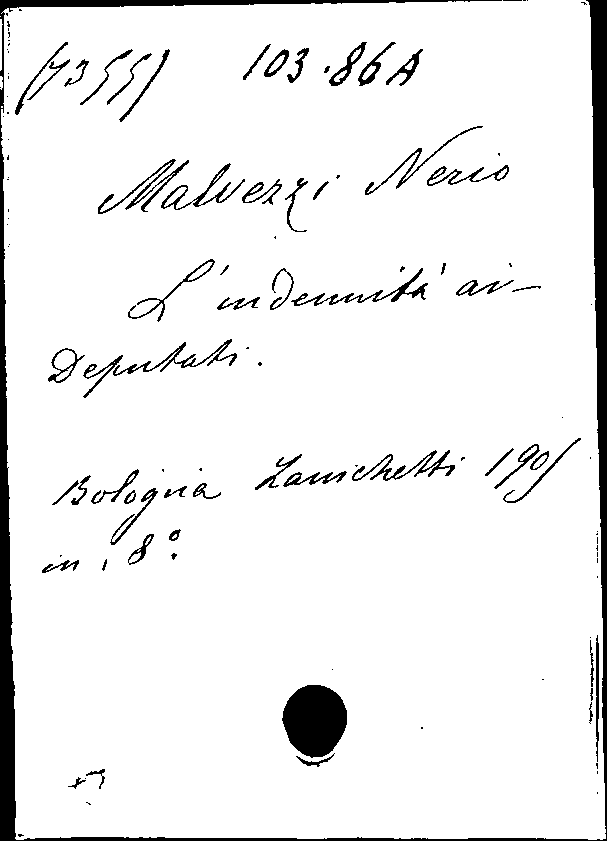 (7355) 103.86A
Malvezzi Nerio
L'indennità ai
Deputati.
Bologna Zanichelli 1905
in. 8°.